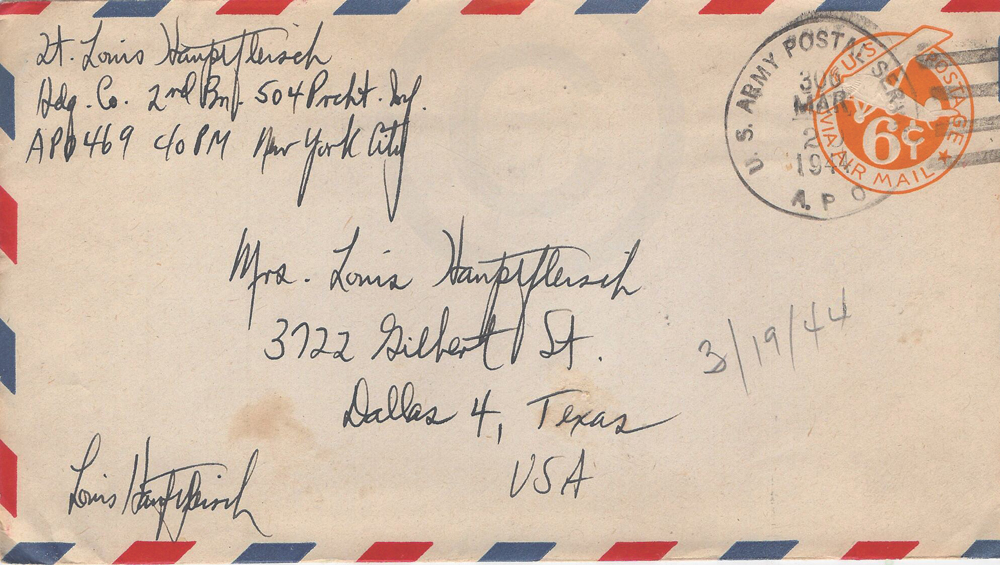 Lt. Louis Hauptfleisch
Hdq. Co. 2nd Bn. 504 Prcht. Inf.
APO 469 c/o PM New York City
U. S. ARMY POSTAL SERVICE
306
MAR
2
1944
A. P. O.
U.S. POSTAGE
VIA AIR MAIL
6¢
Mrs. Louis Hauptfleisch
3722 Gilbert St.
Dallas 4, Texas
USA
3/19/44
Louis Hauptfleisch